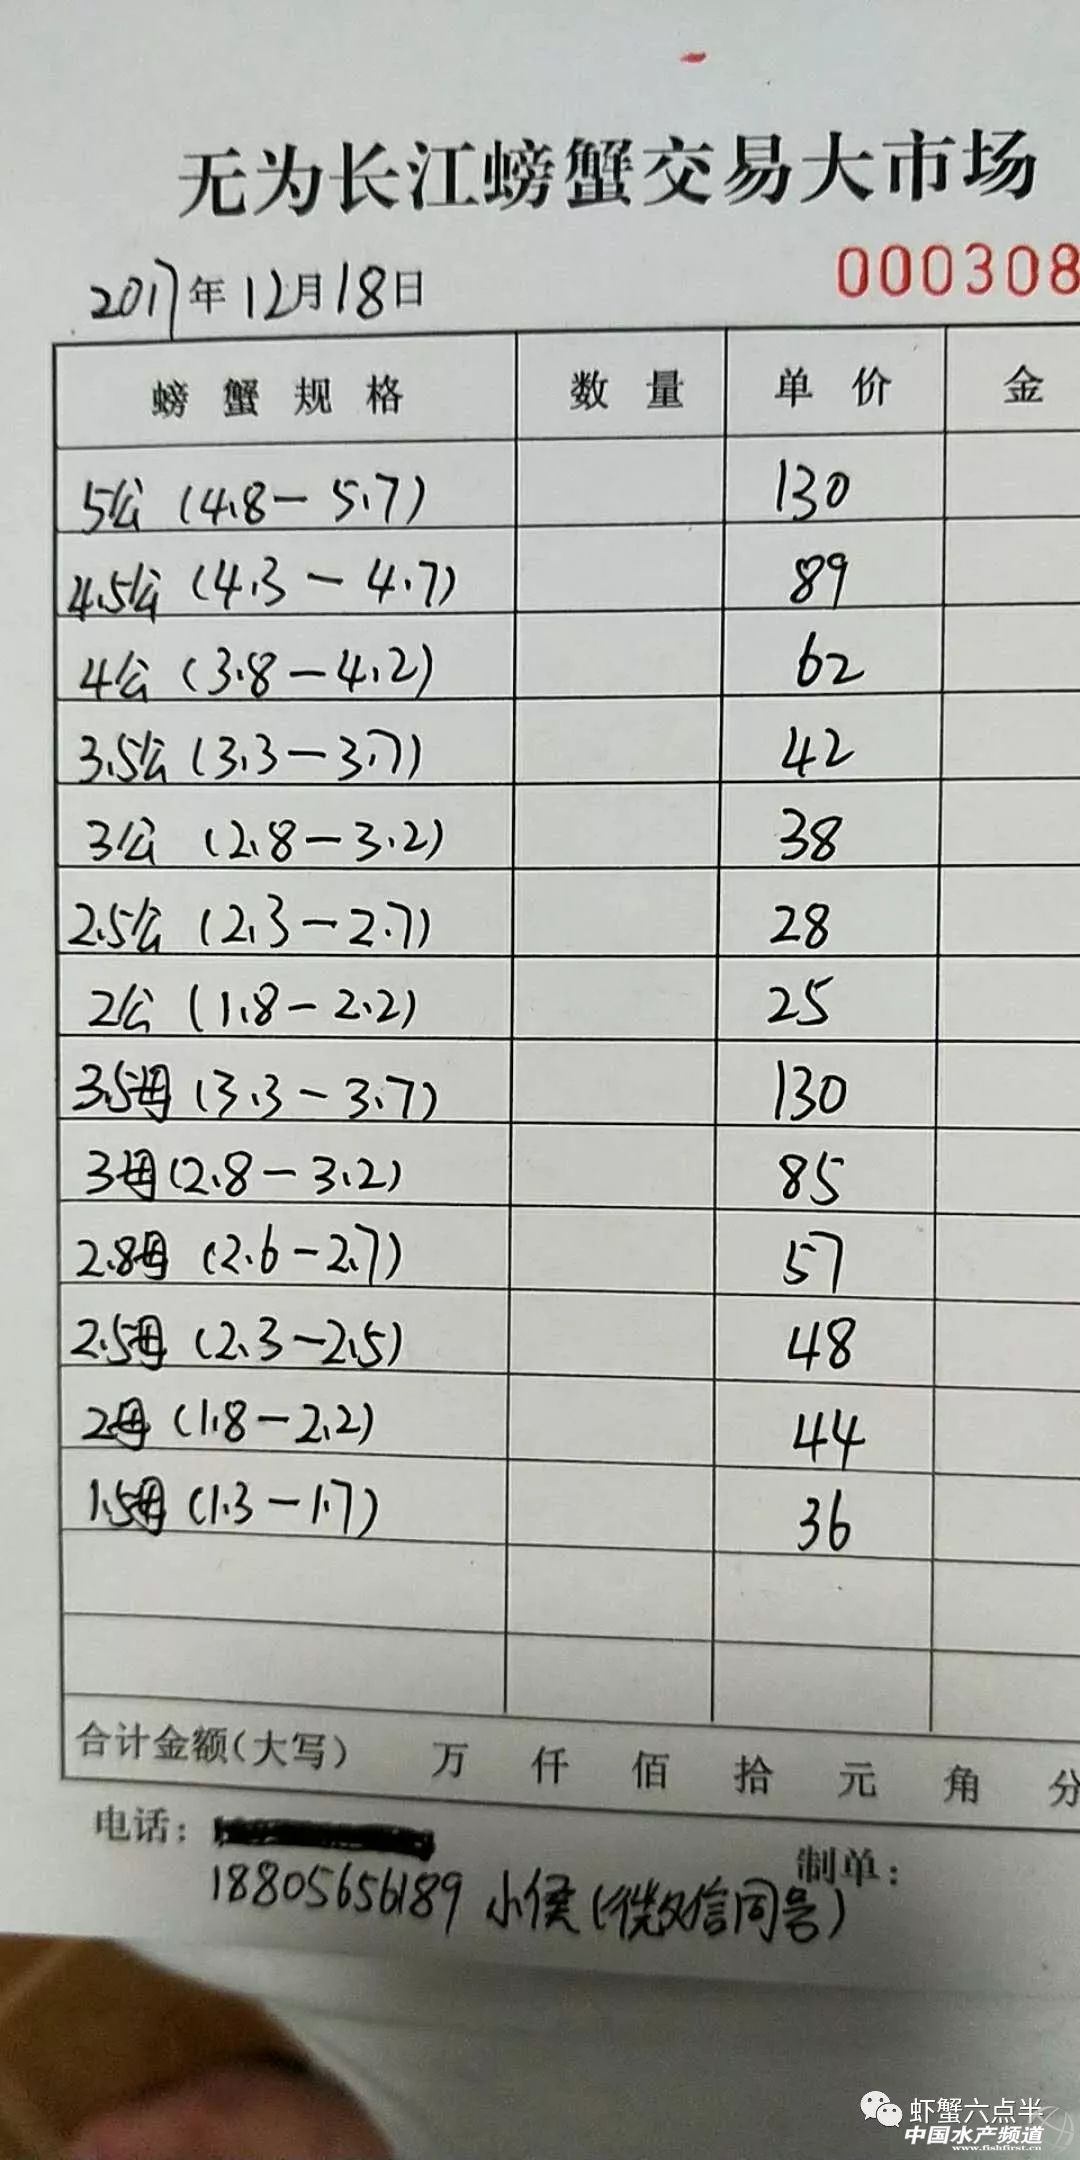 无为长江螃蟹交易大市场
2017年12月18日 000308
螃蟹规格 数量 单价 金
5公(4.8-5.7) 130
4.5公(4.3-4.7) 89
4公(3.8-4.2) 62
3.5公(3.3-3.7) 42
3公(2.8-3.2) 38
2.5公(2.3-2.7) 28
2公(1.8-2.2) 25
3.5母(3.3-3.7) 130
3母(2.8-3.2) 85
2.8母(2.6-2.7) 57
2.5母(2.3-2.5) 48
2母(1.8-2.2) 44
1.5母(1.3-1.7) 36
合计金额(大写) 万 仟 佰 拾 元 角 分
电话: 制单:
18805656189 小侯(微信同号)
虾蟹六点半
中国水产频道
www.fishfirst.cn